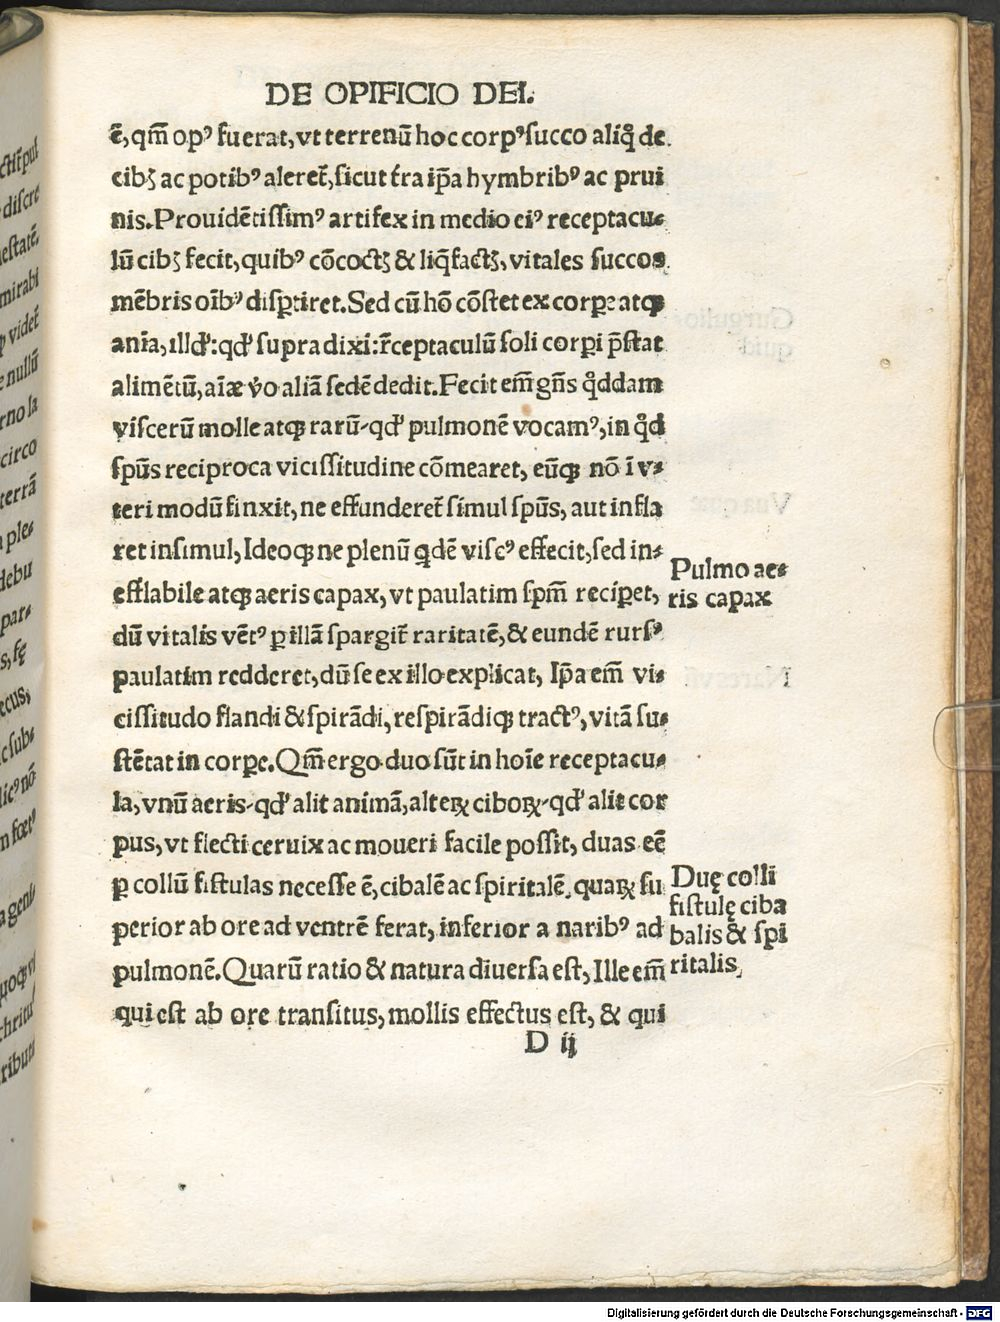 DE OPIFICIO DEI.
ē, qm̄ opꝰ fuerat, vt terrenū hoc corpꝰ succo aliq̊ de
cibꝫ ac potibꝰ aleret̄, sicut t́ra ip̄a hymbribꝰ ac prui
nis. Prouidētissimꝰ artifex in medio eiꝰ receptacu⸗
lū cibꝫ fecit, quibꝰ cōcoctꝫ & liq̄factꝫ, vitales succos
mēbris oībꝰ disꝑtiret. Sed cū hō cōstet ex corꝑe atqꝫ
anīa, illđ: qđ supra dixi: r̄ceptaculū soli corꝑi p̄stat
alimētū, aīæ v̊o aliā sedē dedit. Fecit em̄ gn̄s q̊ddam
viscerū molle atqꝫ rarū⸗qđ pulmonē vocamꝰ, in q̊d
sp̄us reciproca vicissitudine cōmearet, eūqꝫ nō ī v⸗
teri modū finxit, ne effunderet̄ simul sp̄us, aut infla
ret insimul, Ideoqꝫ ne plenū qͥdē viscꝰ effecit, sed in⸗
efflabile atqꝫ aeris capax, vt paulatim sp̄m reciꝑet,
dū vitalis vētꝰ ꝑ illā spargit̄ raritatē, & eundē rursꝰ
paulatim redderet, dū se ex illo explicat, Ip̄a em̄ vi⸗
cissitudo flandi & spirādi, respirādiqꝫ tractꝰ, vitā su⸗
stētat in corꝑe. Qm̄ ergo duo sūt in hoīe receptacu⸗
la, vnū aeris⸗qđ alit animā, alteꝝ ciboꝝ⸗qđ alit cor
pus, vt flecti ceruix ac moueri facile possit, duas eē
ꝑ collū fistulas necesse ē, cibalē ac spiritalē, quaꝝ su
perior ab ore ad ventrē ferat, inferior a naribꝰ ad
pulmonē. Quarū ratio & natura diuersa est, Ille em̄
qui est ab ore transitus, mollis effectus est, & qui
D ij
Pulmo ae⸗
ris capax
Duę colli
fistulę ciba
balis & spi
ritalis,
Digitalisierung gefördert durch die Deutsche Forschungsgemeinschaft - DFG